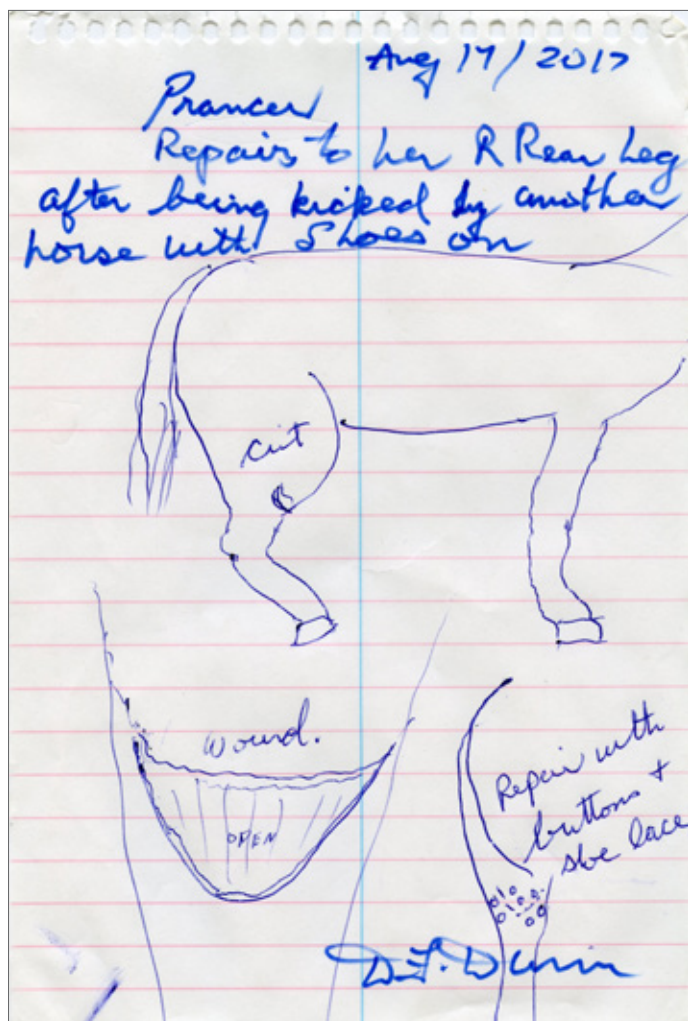 Aug 17/2017
Prancer
Repairs to her R Rear Leg
after being kicked by another
horse with Shoes on
cut
wound.
OPEN
Repair with
buttons +
shoe lace
D.F.